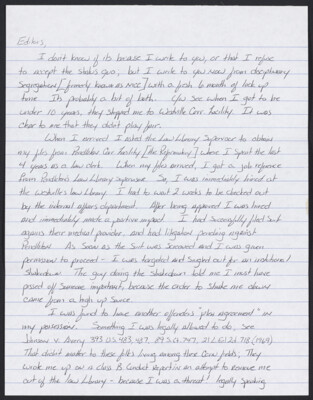 Editors,
I don't know if its because I write to you, or that I refuse
to accept the status quo, but I write to you now from disciplinary
Segregation [formerly known as MCC] with a fresh 6 month of lock up
time. Its probably a bit of both. You see when I got to be
under 10 years, they shipped me to Westville Corr. Facility. It was
clear to me that they didn't play fair.
When I arrived I asked the Law Library Supervisor to obtain
my files from Pendleton Corr Facility [the Reformatory] where I spent the last
4 years as a law clerk. When my files arrived, I got a job reference
from Pendleton's Law Library Supervisor. So, I was immediately hired at
the westville's law library. I had to wait 2 weeks to be checked out
by the internal affairs department. After being approved I was hired
and immediately made a positive impact. I had successfully filed suit
against their medical provider, and had litigation pending against
Pendleton. As soon as the suit was screened and I was given
permission to proceed - I was targeted and singled out for an irrational
Shakedown. The guy doing the shakedown told me I must have
pissed off someone important, because the order to shake me down
came from a high up source.
I was found to have another offenders "plea agreement" in
my possession. Something I was legally allowed to do, see
Johnson v. Avery 393 U.S. 483, 487, 89 S.Ct. 747, 21 L.Ed.2d 718 (1969)
That didn't matter to these folks living among these corn fields. They
wrote me up on a class B Conduct Report in an attempt to remove me
out of the law library - because I was a threat! legally speaking